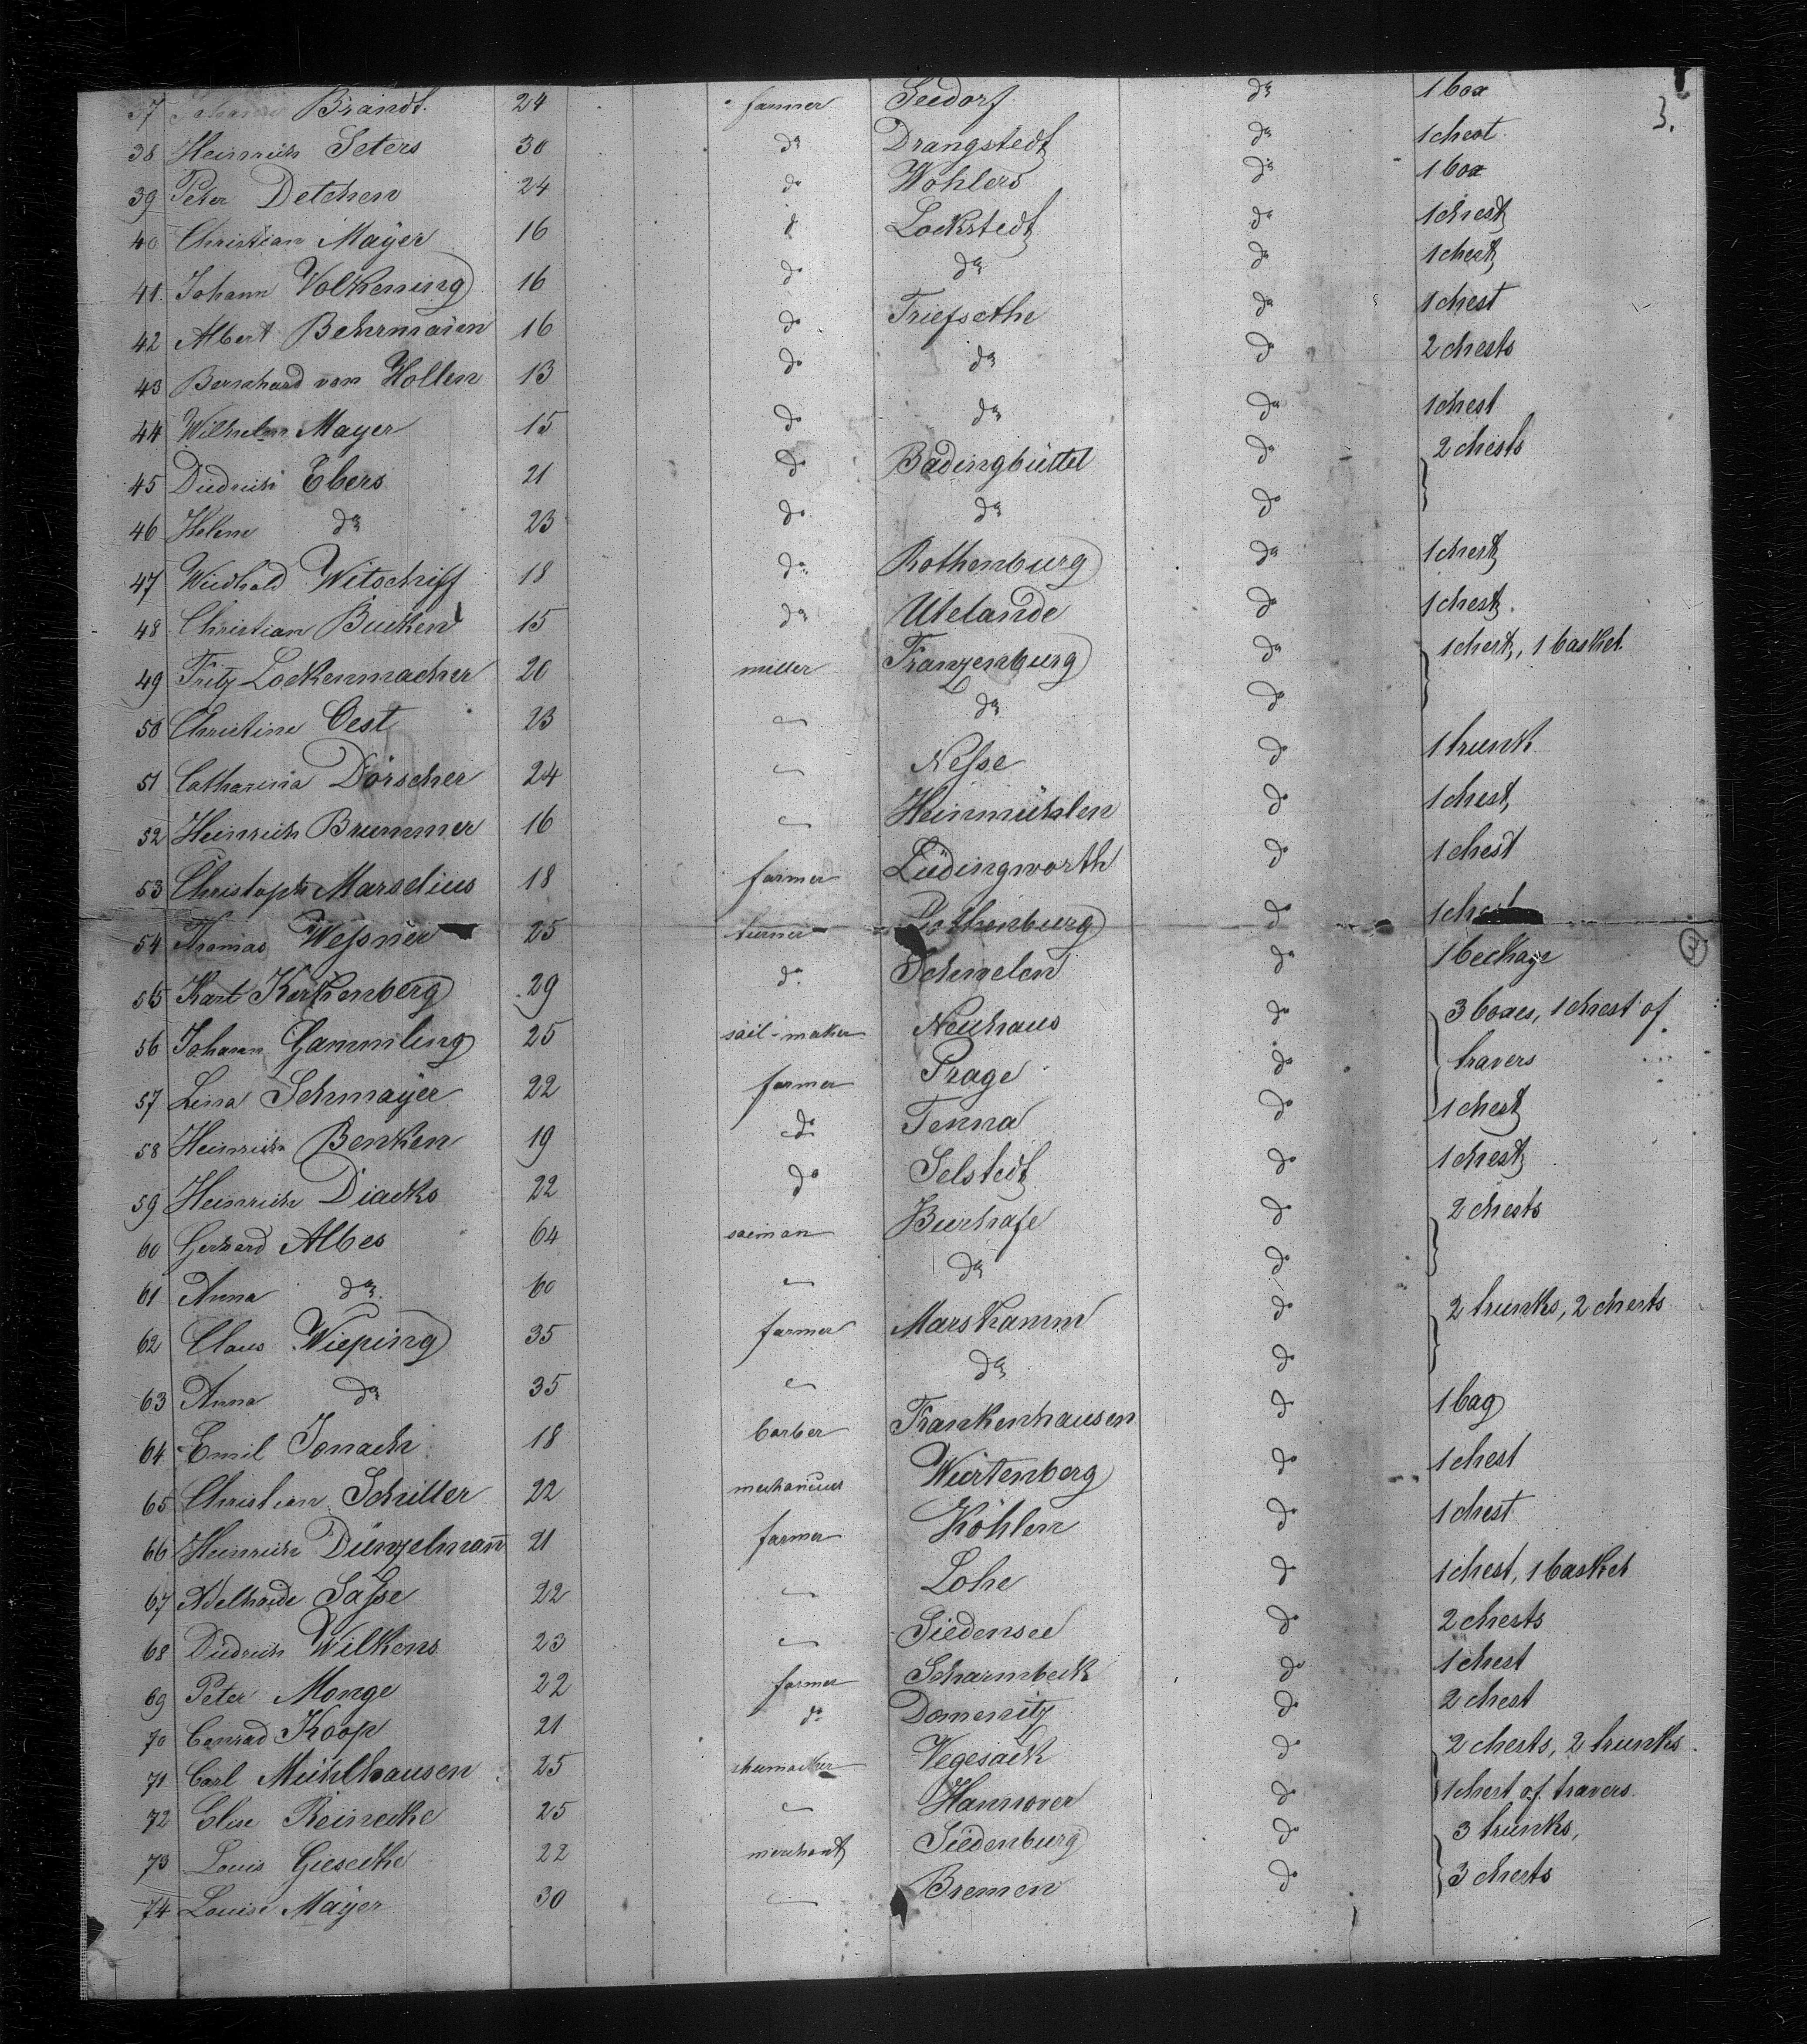 3.
37 Johann Brandt. 24 farmer Seedorf do 1 box
38 Heinrich Seters 30 do Drangstedt do 1 chest
39 Peter Detchen 24 do Wohlers do 1 box
40 Christian Mayer 16 do Lockstedt do 1 chest
41. Johann Volkening 16 do do do 1 chest
42 Albert Behrmann 16 do do 1 chest
43 Bernhard von Hollen 13 do do do 2 chests
44 Wilhelm Mayer 15 do do do 1 chest
45 Diedrich Ebers 21 do Badingbüttel do 2 chests
46 Helene do 23 do do do
47 Witschiff 18 do Rothenburg do 1 chest
48 Christian Bucken 15 do Utelande do 1 chest
49 Fritz Lockenmacher 20 miller Franzenburg do 1 chest, 1 basket
50 Christine Oest 23 — do do
51 Catharina Dörscher 24 — Nesse do 1 trunk
52 Heinrich Brummer 16 — Heinmühlen do 1 chest
53 Christoph Marselius 18 farmer Lüdingworth do 1 chest
54 Thomas Wessner 25 turner Gothenburg do 1 chest
55 Karl Kerkenberg 29 do Schmelen do 1
56 Johann Gammling 25 sail-maker Neuhaus do 3 boxes, 1 chest of
57 Lina Schmayer 22 farmer Prage do travers
58 Heinrich Benken 19 do Tenna do 1 chest
59 Heinrich Diacks 22 do Selstedt do 1 chest
60 Gerhard Albes 64 saeman Burhafe do 2 chests
61 Anna do 60 — do do
62 Claus Wieping 35 farmer Marskamm do 2 trunks, 2 chests
63 Anna do 35 — do do
64 Emil Jonach 18 barber Frankenhausen do 1 bag
65 Christian Schiller 22 mechanicus Würtenberg do 1 chest
66 Heinrich Dünzelmann 21 farmer Köhlen do 1 chest
67 Adelheide Sasse 22 — Lohe do 1 chest, 1 basket
68 Diedrich Wilkens 23 — Siedensee do 2 chests
69 Peter Monge 22 farmer Scharmbeck do 1 chest
70 Conrad Koop 21 do Domenitz do 2 chest
71 Carl Mühlhausen 25 shumacker Vegesack do 2 chests, 2 trunks
72 Elise Reinecke 25 — Hannover do 1 chest of travers
73 Louis Giesecke 22 merchant Siedenburg do 3 trunks,
74 Louise Mayer 30 — Bremen do 3 chests
3